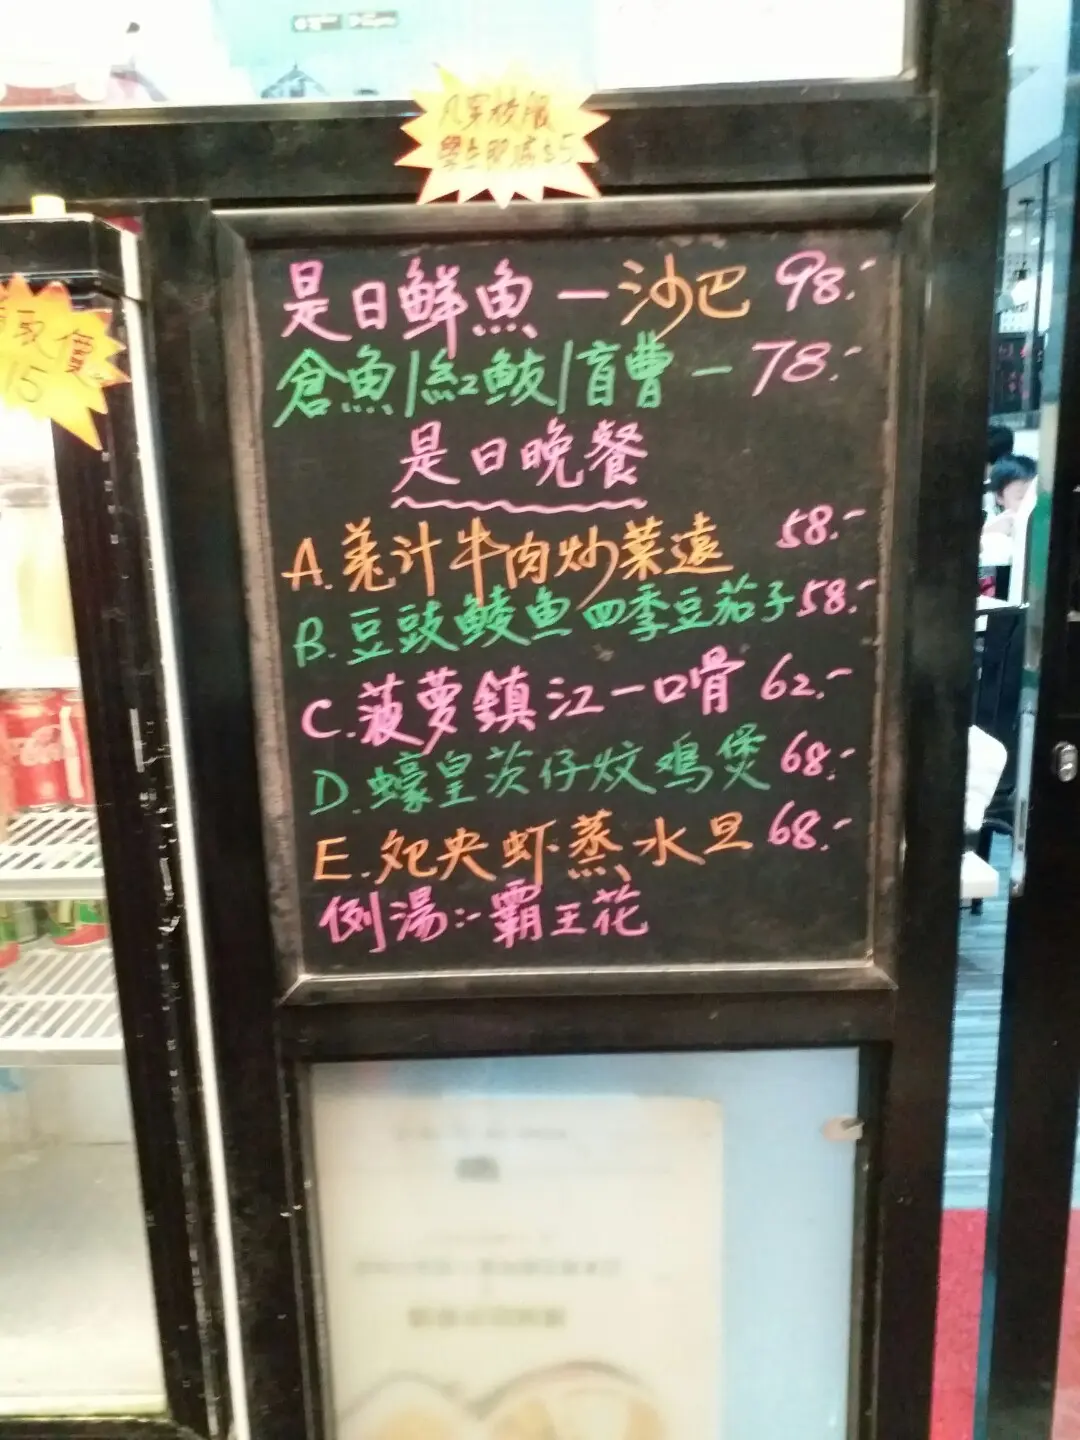 凡穿校服
學生即減$5
是日鮮魚 — 沙巴 98.-
倉魚/紅鮁/盲曹 — 78.-
是日晚餐
A. 羗汁牛肉炒菜遠 58.-
B. 豆豉鯪魚四季豆茄子 58.-
C. 菠萝鎮江一口骨 62.-
D. 蠔皇茨仔炆鳮煲 68.-
E. 夗央虾蒸水旦 68.-
例湯:- 霸王花
取價
15